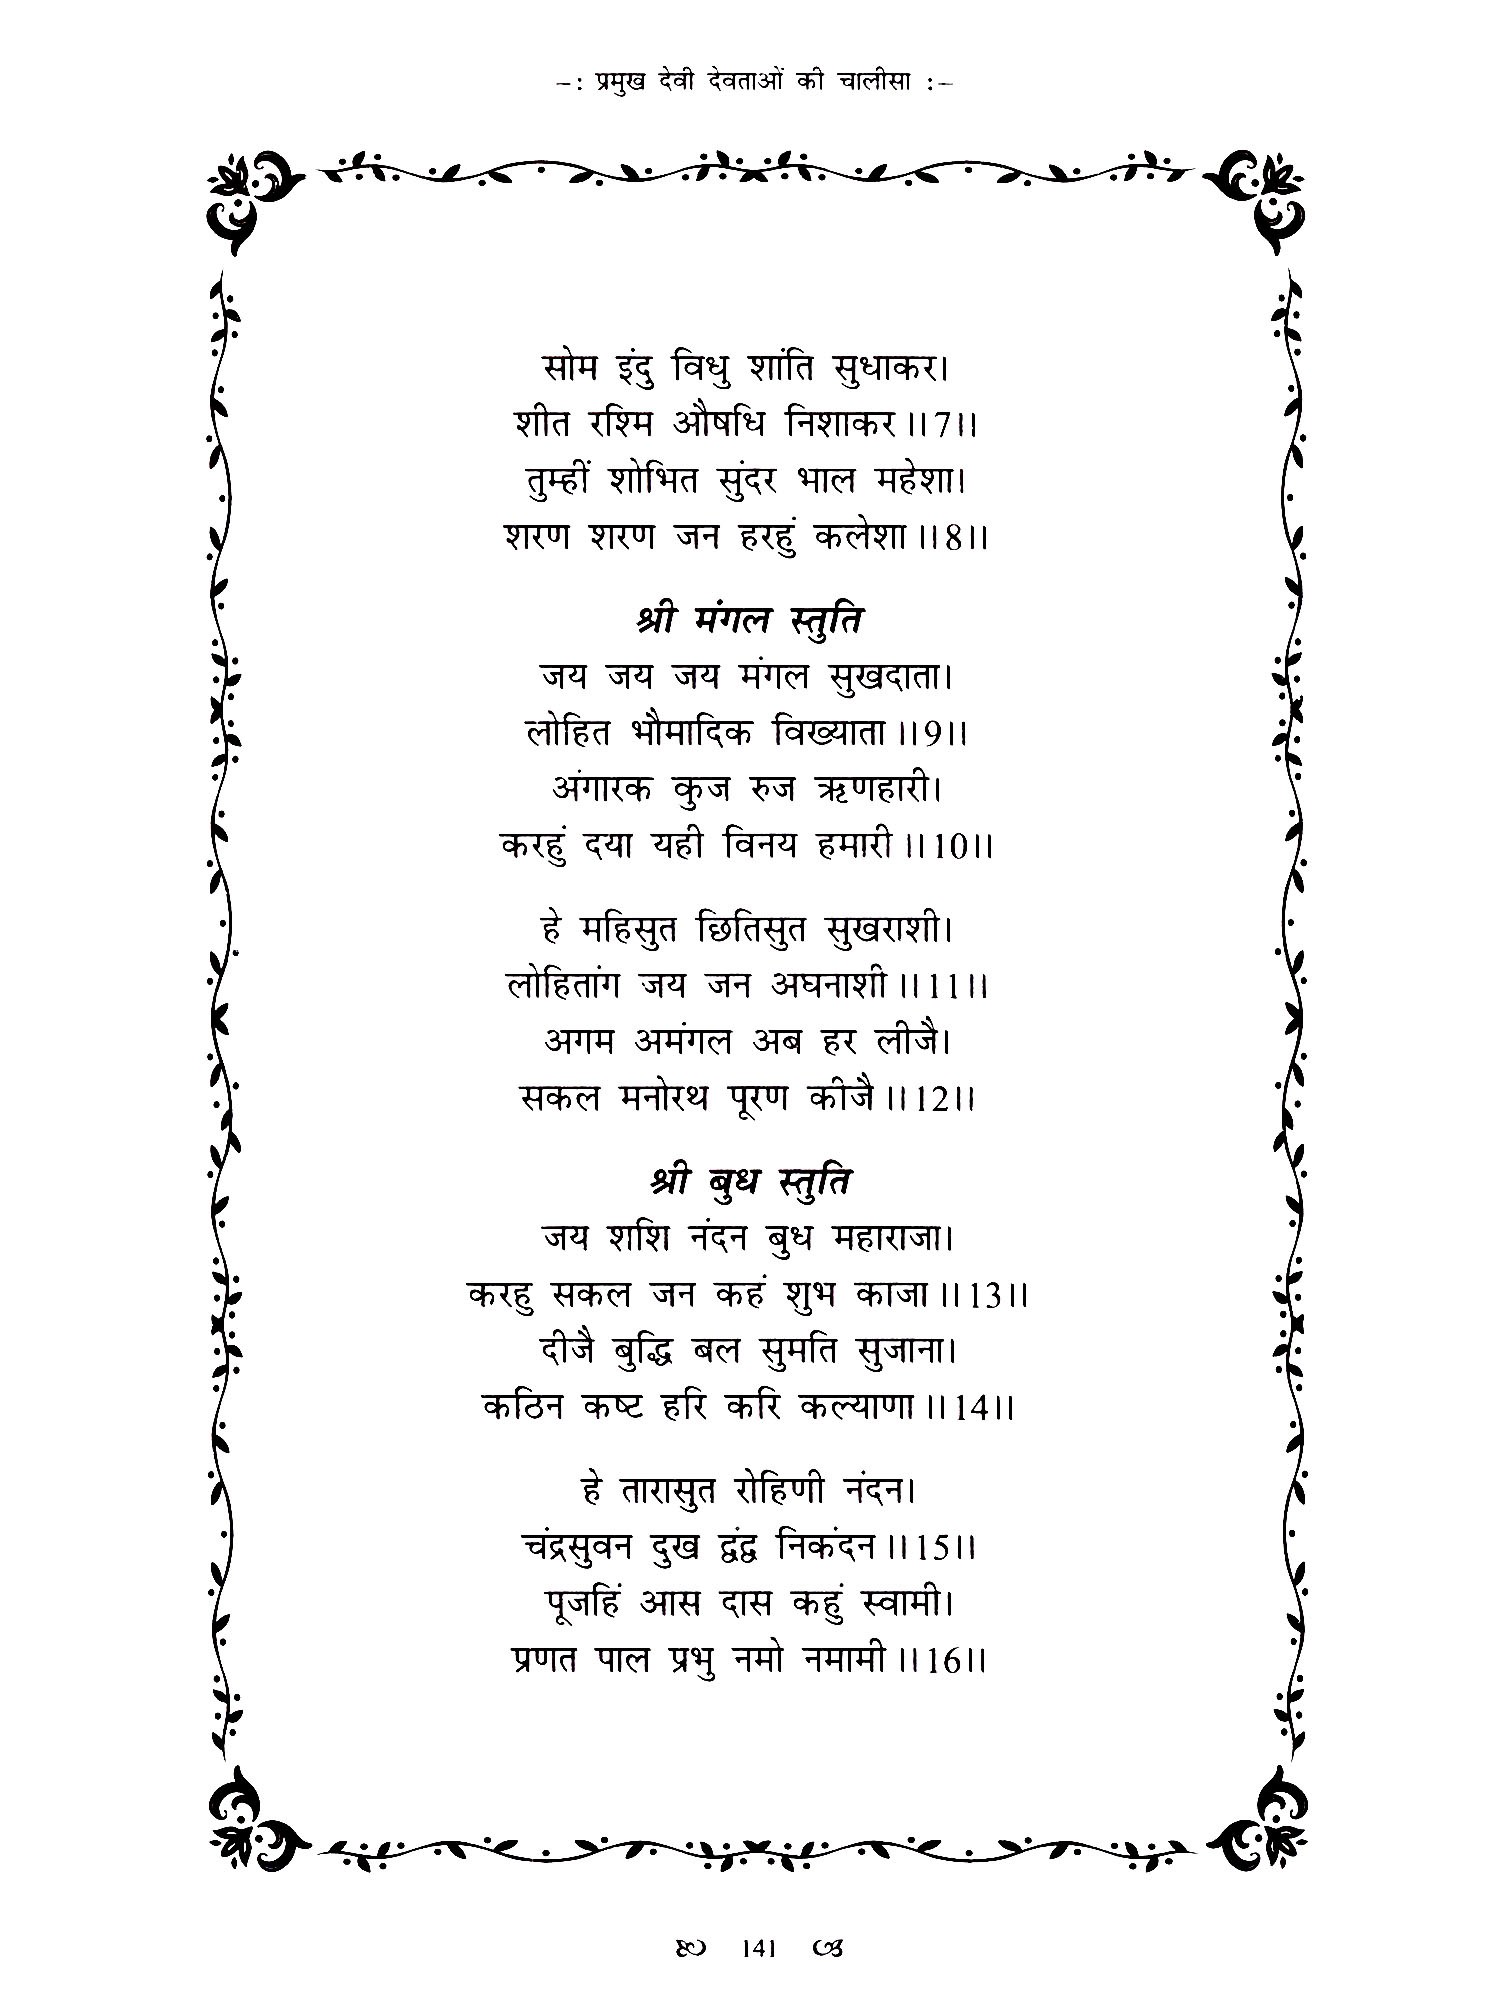 –: प्रमुख देवी देवताओं की चालीसा :–
सोम इंदु विधु शांति सुधाकर।
शीत रश्मि औषधि निशाकर॥7॥
तुम्हीं शोभित सुंदर भाल महेशा।
शरण शरण जन हरहुं कलेशा॥8॥
श्री मंगल स्तुति
जय जय जय मंगल सुखदाता।
लोहित भौमादिक विख्याता॥9॥
अंगारक कुज रुज ऋणहारी।
करहुं दया यही विनय हमारी॥10॥
हे महिसुत छितिसुत सुखराशी।
लोहितांग जय जन अघनाशी॥11॥
अगम अमंगल अब हर लीजै।
सकल मनोरथ पूरण कीजै॥12॥
श्री बुध स्तुति
जय शशि नंदन बुध महाराजा।
करहु सकल जन कहं शुभ काजा॥13॥
दीजै बुद्धि बल सुमति सुजाना।
कठिन कष्ट हरि करि कल्याणा॥14॥
हे तारासुत रोहिणी नंदन।
चंद्रसुवन दुख द्वंद्व निकंदन॥15॥
पूजहिं आस दास कहुं स्वामी।
प्रणत पाल प्रभु नमो नमामी॥16॥
141